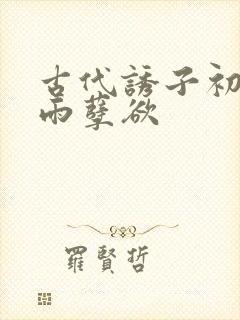 古代誘子初
雨孽欲
羅賢哲